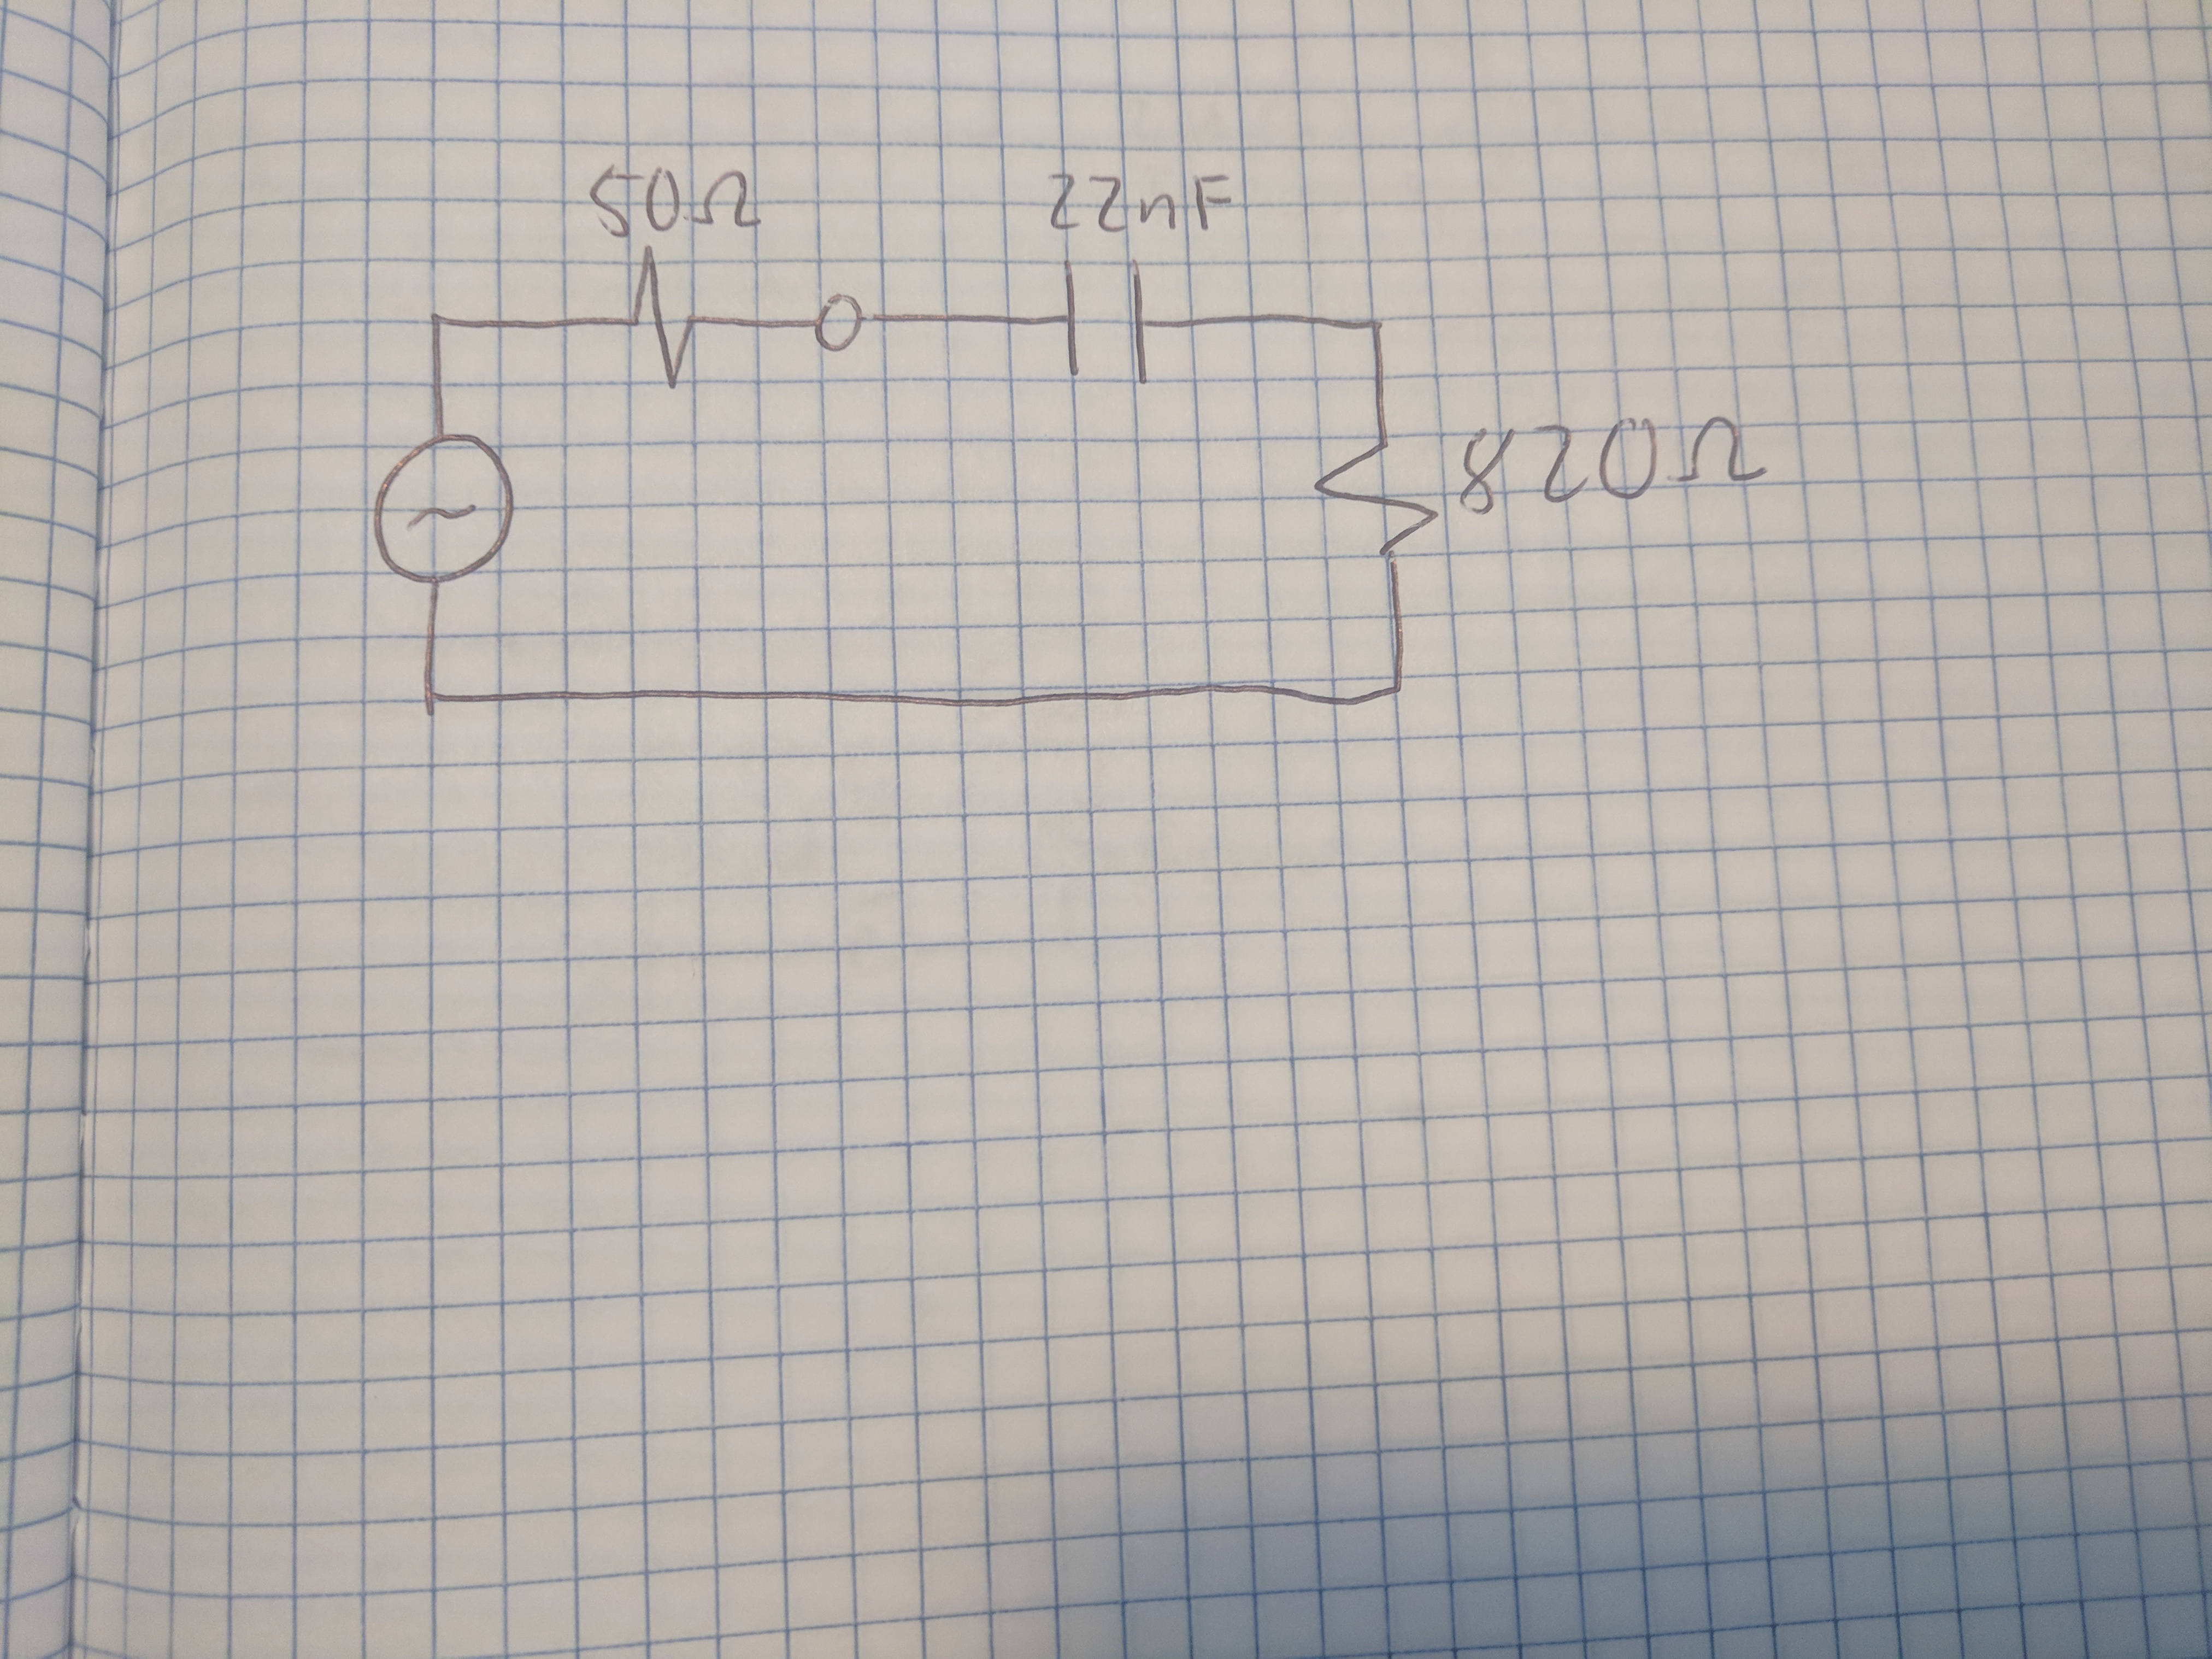 50Ω 22nF
820Ω